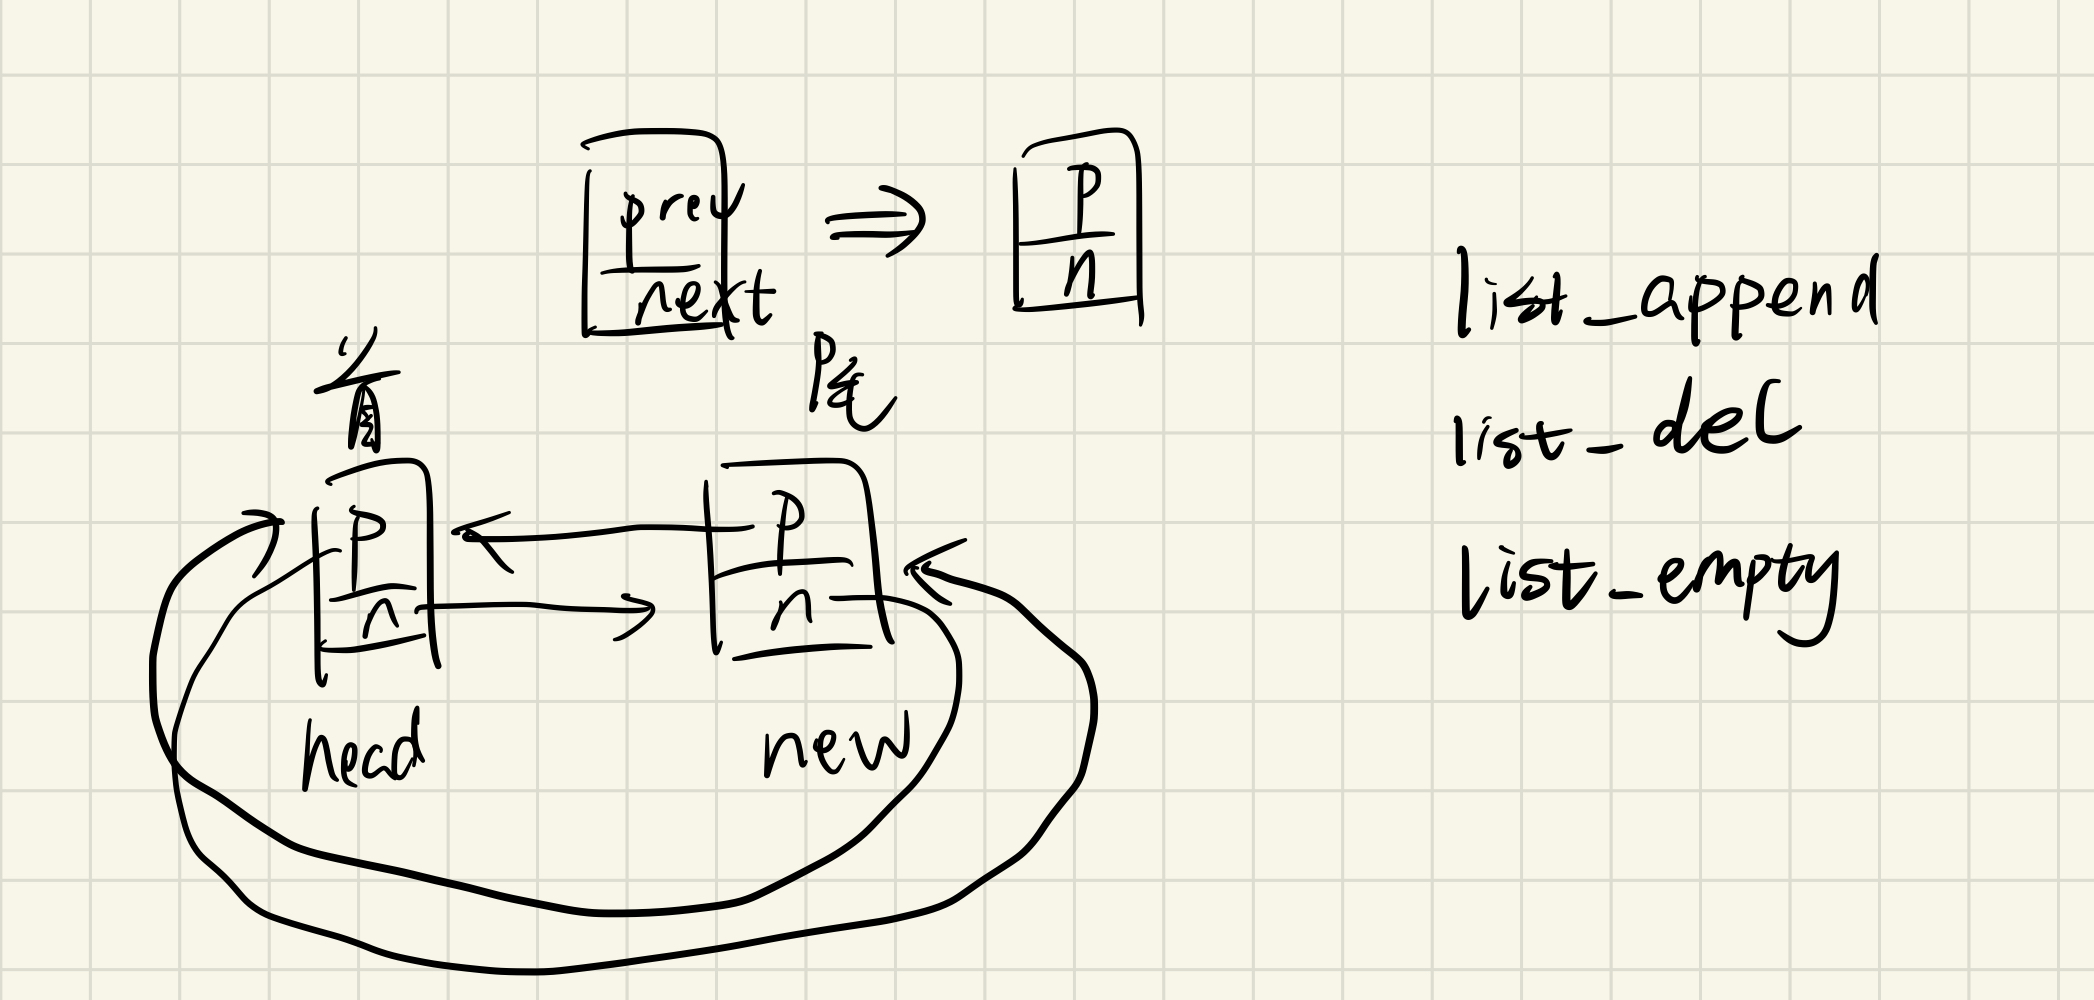 prev
next
P
n
P
n
head
P
n
new
list_append
list_del
list_empty